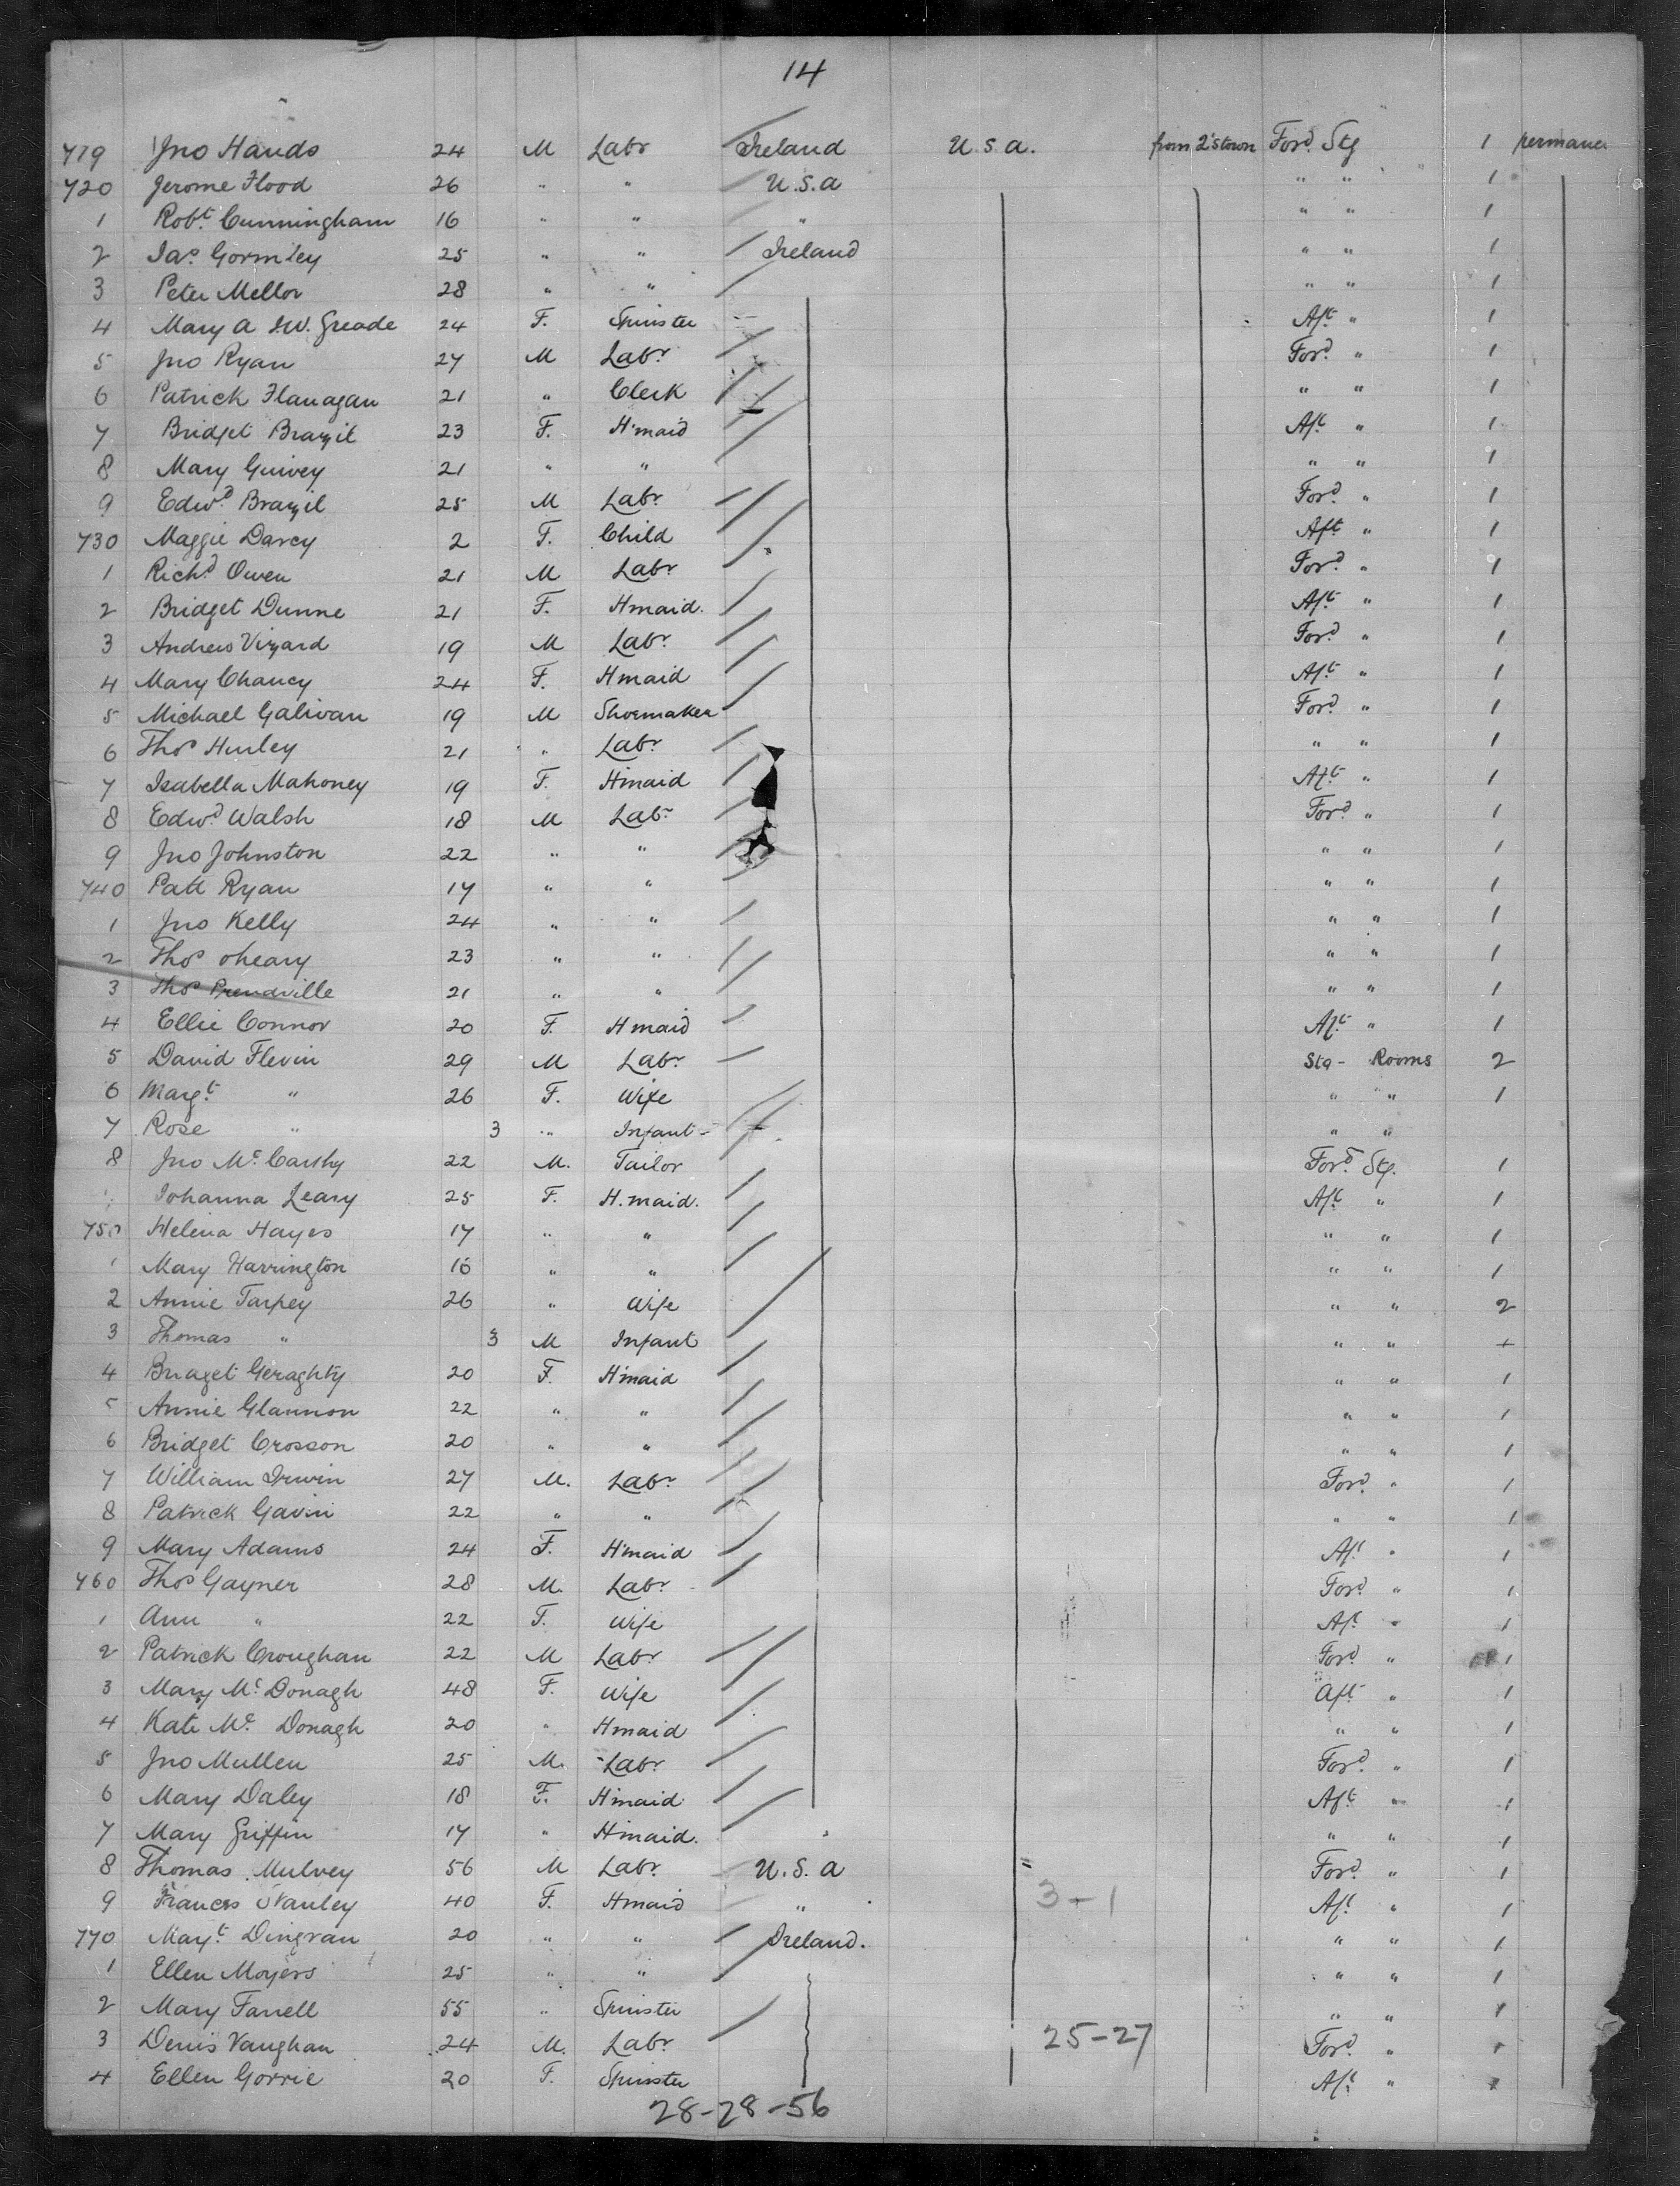 14
719 Jno Hands 24 M Labr Ireland U.S.a. from 2'stown Ford. Stg 1 permanen
720 Jerome Flood 26 " " U.S.a " " 1
1 Robt. Cunningham 16 " " " " " 1
2 Jas. Gormley 25 " " Ireland " " 1
3 Peter Mellor 28 " " " " 1
4 Mary A 24 F. Spinster Aft. " 1
5 Jno Ryan 27 M Labr. Ford. " 1
6 Patrick Flanagan 21 " Clerk " " 1
7 Bridget Brazil 23 F. H'maid Aft. " 1
8 Mary Guivey 21 " " " " 1
9 Edwd. Brazil 25 M Labr. Ford. " 1
730 Maggie Darcy 2 F. Child Aft. " 1
1 Richd Owen 21 M Labr. Ford. " 1
2 Bridget Dunne 21 F. Hmaid. Aft. " 1
3 Andrew Vizard 19 M Labr. Ford. " 1
4 Mary Chancy 24 F. Hmaid Aft. " 1
5 Michael Galivan 19 M Shoemaker Ford. " 1
6 Thos Hurley 21 " Labr. " " 1
7 Isabella Mahoney 19 F. Hmaid Aft. " 1
8 Edwd. Walsh 18 M Labr. Ford. " 1
9 Jno Johnston 22 " " " " 1
740 Patt Ryan 17 " " " " 1
1 Jno Kelly 24 " " " " 1
2 Thos oheary 23 " " " " 1
3 Thos Prendville 21 " " " " 1
4 Ellie Connor 20 F. Hmaid Aft. " 1
5 David Flevin 29 M Labr. Stg- Rooms 2
6 Margt. " 26 F. Wife " " 1
7 Rose " 3 " Infant " "
8 Jno Mc. Carthy 22 M. Tailor Ford. Stg. 1
Johanna Leary 25 F. H.maid. Aft " 1
750 Helena Hayes 17 " " " " 1
1 Mary Harrington 16 " " " " 1
2 Annie Tarpey 26 " Wife " " 2
3 Thomas " 3 M Infant " " +
4 Bridget Geraghty 20 F. H'maid " " 1
5 Annie Glannon 22 " " " " 1
6 Bridget Crosson 20 " " " " 1
7 William Irwin 27 M. Labr. Ford. " 1
8 Patrick Gavin 22 " " " " 1
9 Mary Adams 24 F. H'maid Aft. " 1
760 Thos Gayner 28 M. Labr. Ford. " 1
1 Ann " 22 F. Wife Aft. " 1
2 Patrick Croughan 22 M Labr. Ford. " 1
3 Mary Mc. Donagh 48 F. Wife Aft. " 1
4 Kate Mc. Donagh 20 " Hmaid " " 1
5 Jno Mullen 25 M. Labr. Ford. " 1
6 Mary Daley 18 F. Hmaid Aft. " 1
7 Mary Griffin 17 " Hmaid. " " 1
8 Thomas Mulvey 56 M Labr. U.S.a Ford. " 1
9 Frances 40 F. Hmaid " 3-1 Aft. " 1
770 Mayt. Dingvan 20 " " Ireland. " " 1
1 Ellen Moyers 25 " " " " 1
2 Mary Farrell 55 " Spinster " " 1
3 Denis Vaughan 24 M. Labr. 25-27 Ford. " 1
4 Ellen Gorrie 20 F. Spinster Aft. " 1
28-28-56